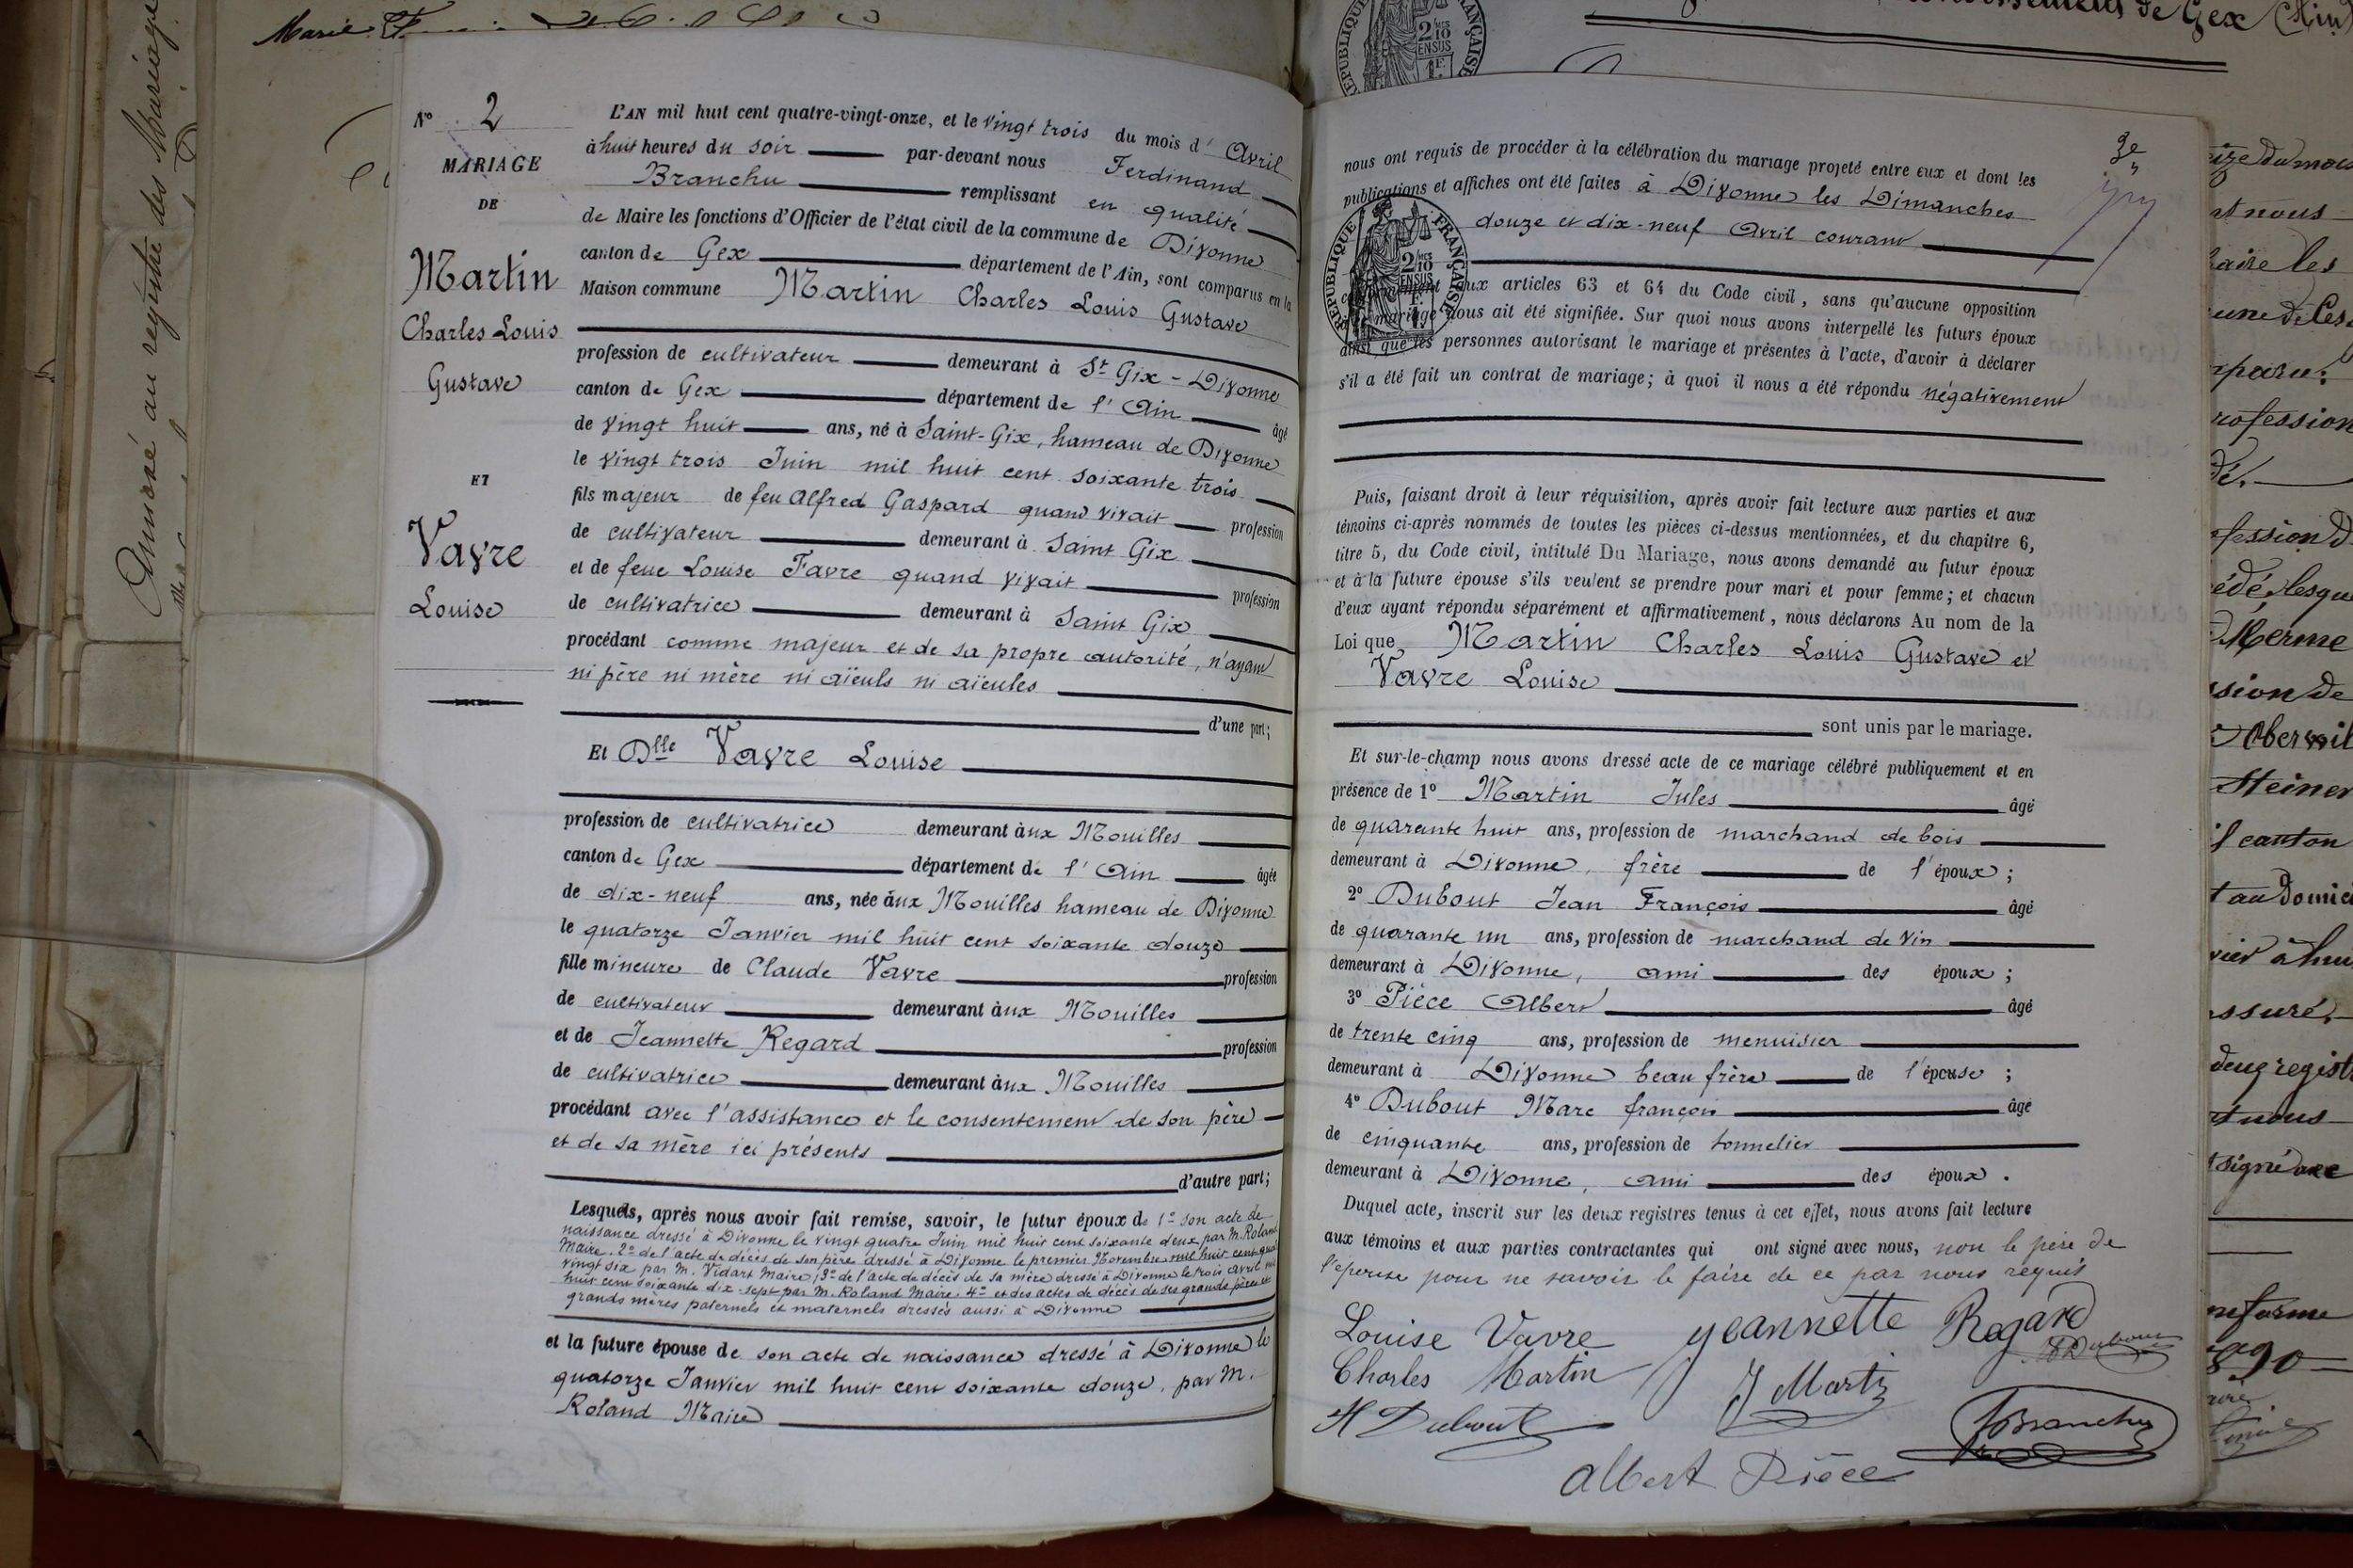 Marie
Annexé au registre des Mariage
N° 2
MARIAGE
DE
Martin
Charles Louis
Gustave
ET
Vavre
Louise
L'AN mil huit cent quatre-vingt-onze, et le vingt trois du mois d' Avril
à huit heures du soir par-devant nous Ferdinand
Branchu remplissant en qualité
de Maire les fonctions d'Officier de l'état civil de la commune de Divonne
canton de Gex département de l'Ain, sont comparus en la
Maison commune Martin Charles Louis Gustave
profession de cultivateur demeurant à St Gix - Divonne
canton de Gex département de l'Ain âgé
de vingt huit ans, né à Saint-Gix, hameau de Divonne
le vingt trois Juin mil huit cent soixante trois
fils majeur de feu Alfred Gaspard quand vivait profession
de cultivateur demeurant à Saint Gix
et de feue Louise Favre quand vivait profession
de cultivatrice demeurant à Saint Gix
procédant comme majeur et de sa propre autorité, n'ayant
ni père ni mère ni aïeuls ni aïeules
d'une part;
Et Dlle Vavre Louise
profession de cultivatrice demeurant àux Mouilles
canton de Gex département de l'Ain âgée
de dix-neuf ans, née àux Mouilles hameau de Divonne
le quatorze Janvier mil huit cent soixante douze
fille mineure de Claude Vavre profession
de cultivateur demeurant àux Mouilles
et de Jeannette Regard profession
de cultivatrice demeurant àux Mouilles
procédant avec l'assistance et le consentement de son père
et de sa mère ici présents
d'autre part;
Lesquels, après nous avoir fait remise, savoir, le futur époux de 1° son acte de
naissance dressé à Divonne le vingt quatre Juin mil huit cent soixante deux par M. Roland
Maire. 2° de l'acte de décès de son père dressé à Divonne le premier Novembre mil huit cent quatre
vingt six par M. Vidart Maire; 3° de l'acte de décès de sa mère dressé à Divonne le trois avril mil
huit cent soixante dix-sept par M. Roland Maire. 4° et des actes de décès de ses grands pères et
grands mères paternels et maternels dressés aussi à Divonne
et la future épouse de son acte de naissance dressé à Divonne le
quatorze Janvier mil huit cent soixante douze, par M.
Roland Maire
de Gex (Ain)
nous ont requis de procéder à la célébration du mariage projeté entre eux et dont les
publications et affiches ont été faites à Divonne les Dimanches
douze et dix-neuf Avril courant
RÉPUBLIQUE FRANÇAISE
2/10 EN SUS
conformément aux articles 63 et 64 du Code civil, sans qu'aucune opposition
mariage nous ait été signifiée. Sur quoi nous avons interpellé les futurs époux
ainsi que les personnes autorisant le mariage et présentes à l'acte, d'avoir à déclarer
s'il a été fait un contrat de mariage; à quoi il nous a été répondu négativement
Puis, faisant droit à leur réquisition, après avoir fait lecture aux parties et aux
témoins ci-après nommés de toutes les pièces ci-dessus mentionnées, et du chapitre 6,
titre 5, du Code civil, intitulé Du Mariage, nous avons demandé au futur époux
et à la future épouse s'ils veulent se prendre pour mari et pour femme; et chacun
d'eux ayant répondu séparément et affirmativement, nous déclarons Au nom de la
Loi que Martin Charles Louis Gustave et
Vavre Louise
sont unis par le mariage.
Et sur-le-champ nous avons dressé acte de ce mariage célébré publiquement et en
présence de 1° Martin Jules âgé
de quarante huit ans, profession de marchand de bois
demeurant à Divonne, frère de l'époux;
2° Dubout Jean François âgé
de quarante un ans, profession de marchand de vin
demeurant à Divonne, ami des époux;
3° Pièce Albert âgé
de trente cinq ans, profession de menuisier
demeurant à Divonne beau frère de l'épouse;
4° Dubout Marc françois âgé
de cinquante ans, profession de tonnelier
demeurant à Divonne, ami des époux.
Duquel acte, inscrit sur les deux registres tenus à cet effet, nous avons fait lecture
aux témoins et aux parties contractantes qui ont signé avec nous, non le père de
l'épouse pour ne savoir le faire de ce par nous requis
Louise Vavre Jeannette Regard
Dubout
Charles Martin J Martin
Dubout
Branchu
Albert Pièce